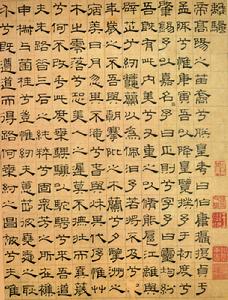 離騷
帝高陽之苗裔兮朕皇考曰伯庸攝提貞于
孟陬兮惟庚寅吾以降皇覽揆余于初度兮
肇錫余以嘉名名余曰正則兮字余曰靈均紛
吾既有此內美兮又重之以脩能扈江離與
辟芷兮紉秋蘭以為佩汩余若將不及兮恐
年歲之不吾與朝搴阰之木蘭兮夕攬洲之
宿莽日月忽其不淹兮春與秋其代序惟草
木之零落兮恐美人之遲暮不撫壯而棄穢
兮何不改乎此度乘騏驥以馳騁兮來吾道
夫先路昔三后之純粹兮固衆芳之所在雜
申椒與菌桂兮豈維紉夫蕙茝彼堯舜之耿
介兮既遵道而得路何桀紂之昌披兮夫惟